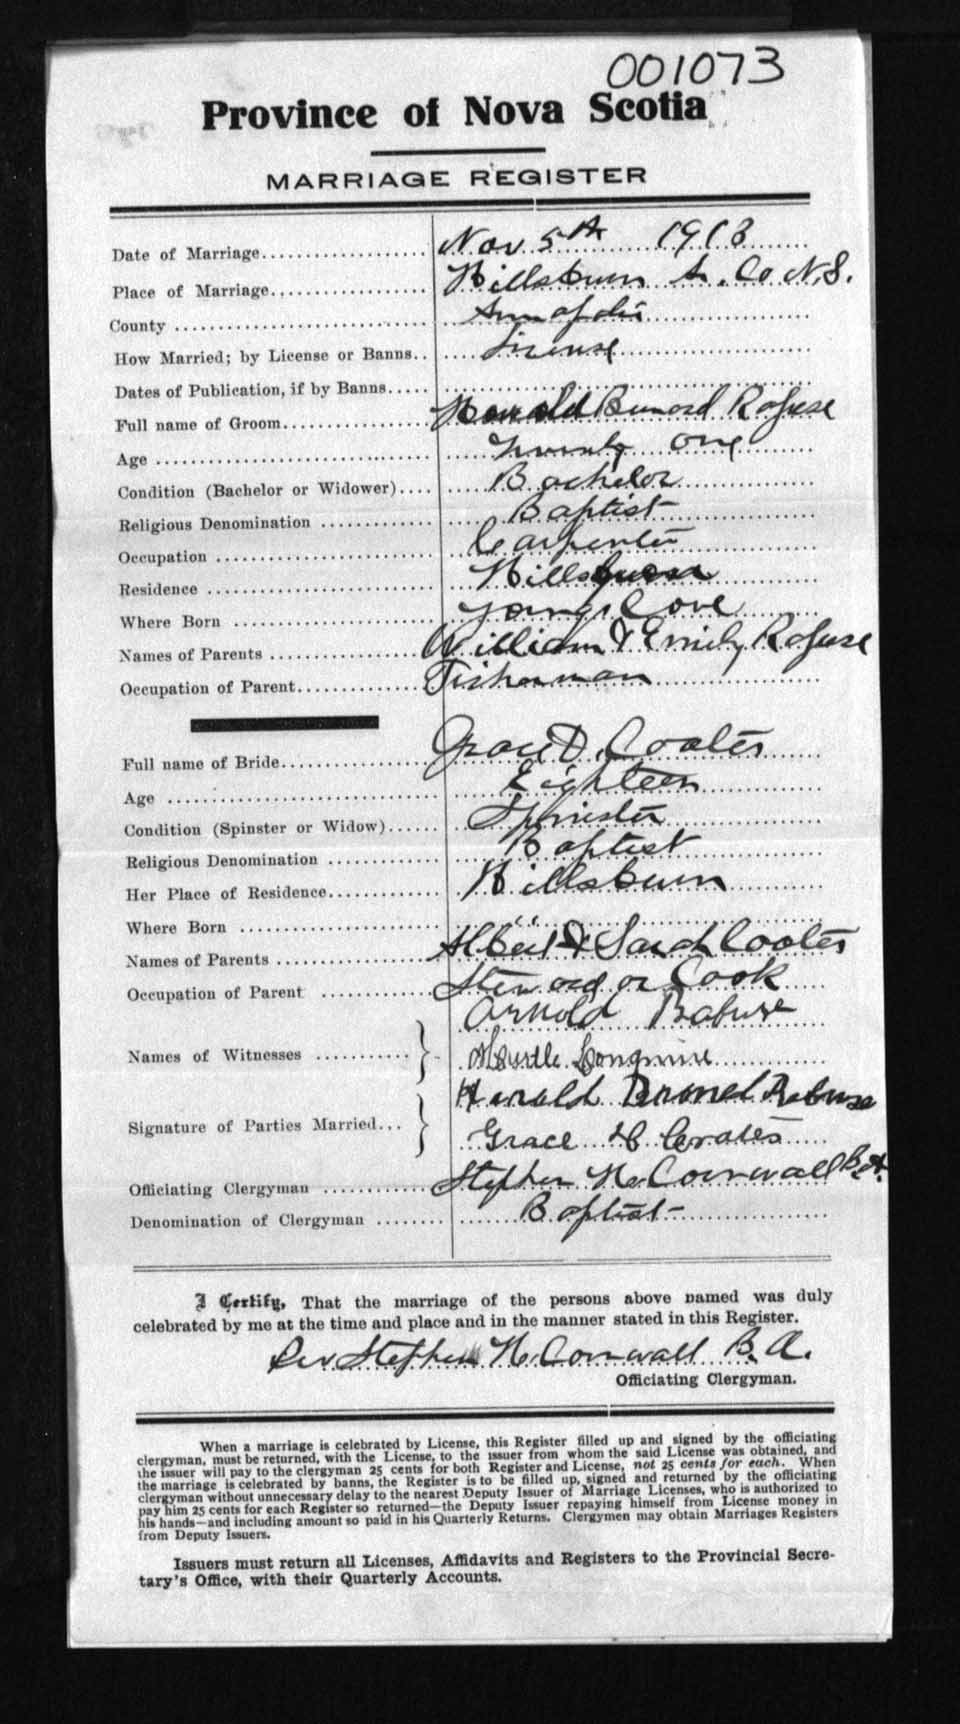 001073
Province of Nova Scotia
MARRIAGE REGISTER
Date of Marriage Nov 5th 1913
Place of Marriage Hillsburn A. Co N.S.
County Annapolis
How Married; by License or Banns License
Dates of Publication, if by Banns
Full name of Groom Harold Bernard Rafuse
Age Twenty one
Condition (Bachelor or Widower) Bachelor
Religious Denomination Baptist
Occupation Carpenter
Residence Hillsburn
Where Born Youngs Cove
Names of Parents William & Emily Rafuse
Occupation of Parent Fisherman
Full name of Bride Grace D. Coates
Age Eighteen
Condition (Spinster or Widow) Spinster
Religious Denomination Baptist
Her Place of Residence Hillsburn
Where Born "
Names of Parents Albert & Sarah Coates
Occupation of Parent Steward or Cook
Names of Witnesses Arnold Rafuse
Myrtle Longmire
Signature of Parties Married Harald Rafuse
Grace Coates
Officiating Clergyman Stephen H. Cornwall B.A.
Denomination of Clergyman Baptist
I Certify, That the marriage of the persons above named was duly
celebrated by me at the time and place and in the manner stated in this Register.
Rev Stephen H. Cornwall B.A.
Officiating Clergyman.
When a marriage is celebrated by License, this Register filled up and signed by the officiating
clergyman, must be returned, with the License, to the issuer from whom the said License was obtained, and
the issuer will pay to the clergyman 25 cents for both Register and License, not 25 cents for each. When
the marriage is celebrated by banns, the Register is to be filled up, signed and returned by the officiating
clergyman without unnecessary delay to the nearest Deputy Issuer of Marriage Licenses, who is authorized to
pay him 25 cents for each Register so returned—the Deputy Issuer repaying himself from License money in
his hands—and including amount so paid in his Quarterly Returns. Clergymen may obtain Marriages Registers
from Deputy Issuers.
Issuers must return all Licenses, Affidavits and Registers to the Provincial Secre-
tary's Office, with their Quarterly Accounts.